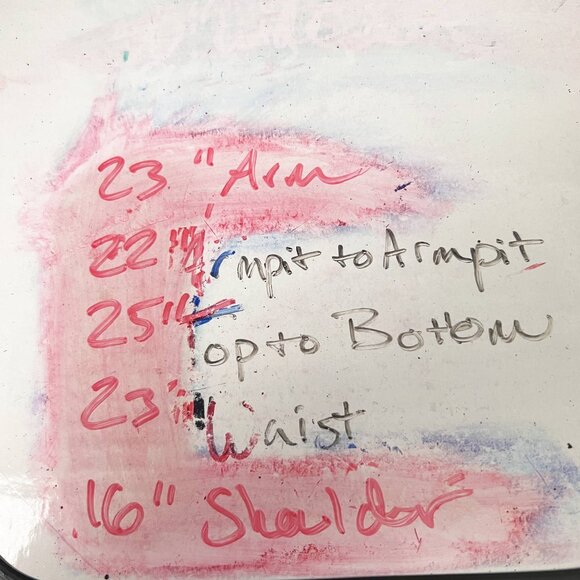 23" Arm
22" Armpit to Armpit
25" Top to Bottom
23" Waist
16" Shoulder